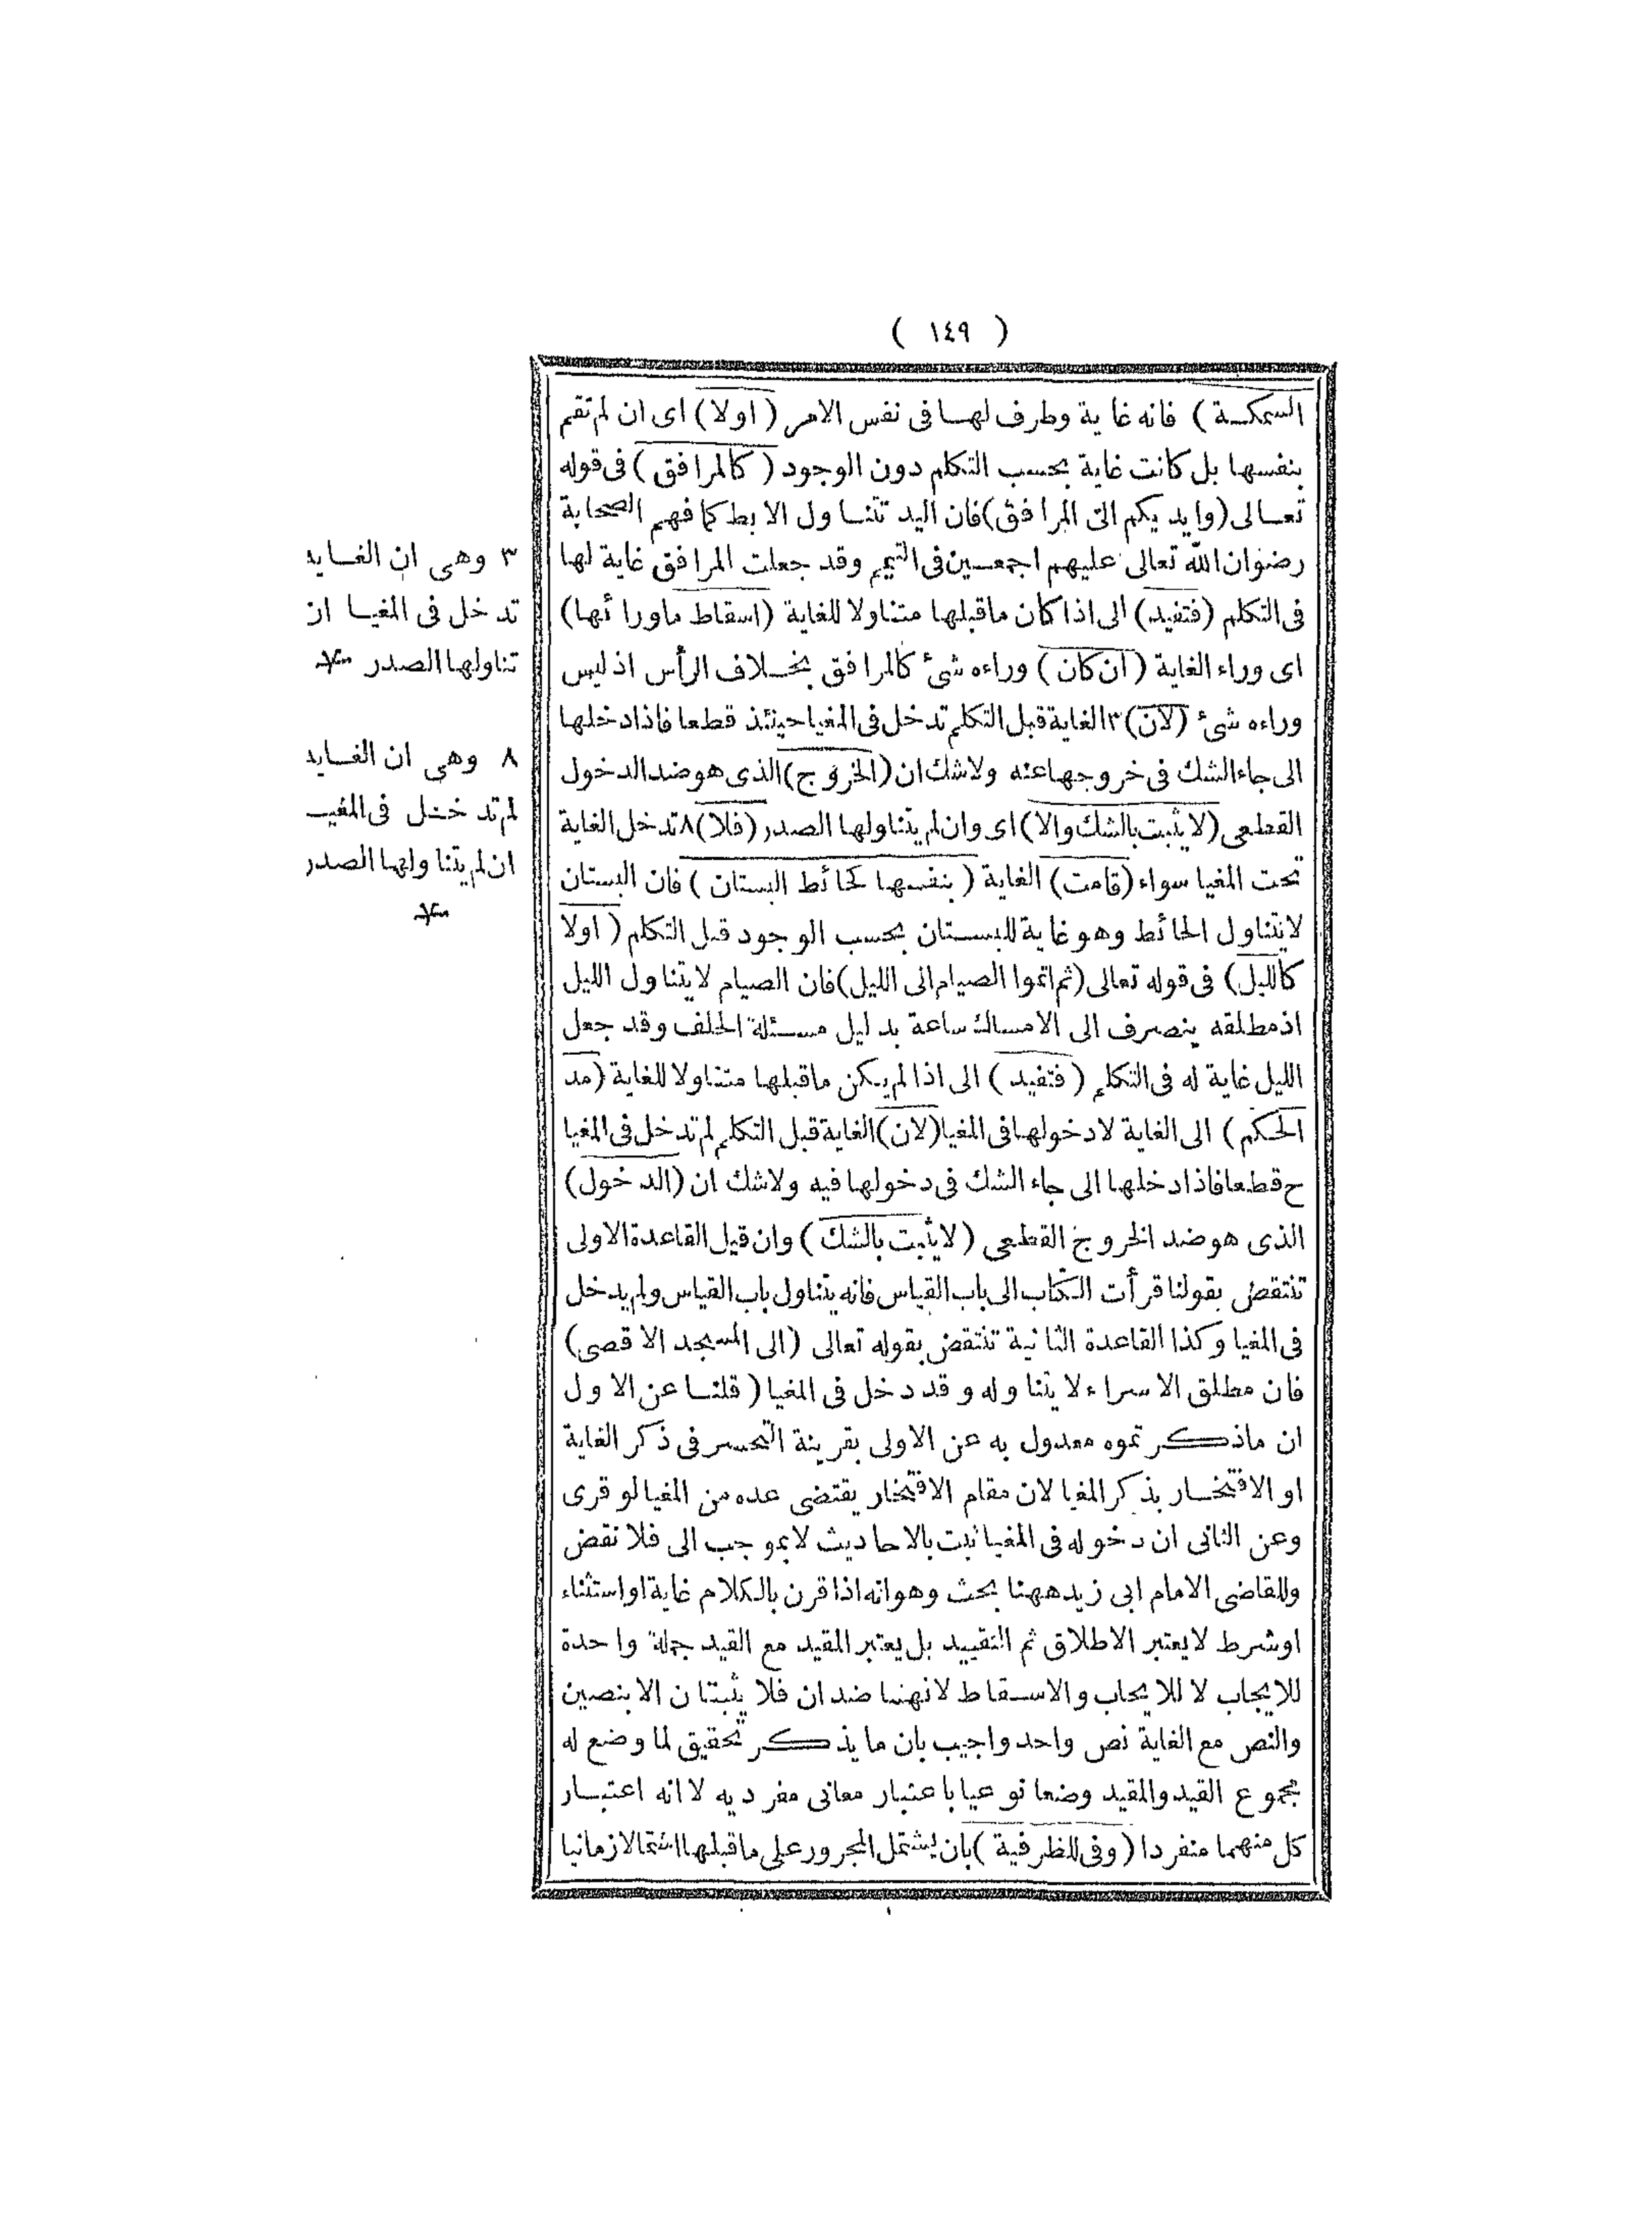 ( ١٤٩ )
السمكة ) فانه غاية وطرف لها فى نفس الامر ( اولا ) اى ان لم تقم
بنفسها بل كانت غاية بحسب التكلم دون الوجود ( كالمرافق ) فى قوله
تعالى ( وايديكم الى المرافق ) فان اليد تتناول الابط كما فهم الصحابة
رضوان الله تعالى عليهم اجمعين فى التيمم وقد جعلت المرافق غاية لها
فى التكلم ( فتفيد ) الى اذا كان ماقبلها متناولا للغاية ( اسقاط ماورائها )
اى وراء الغاية ( ان كان ) وراءه شئ كالمرافق بخلاف الرأس اذ ليس
وراءه شئ ( لان ) ٣ الغاية قبل التكلم تدخل فى المغيا حينئذ قطعا فاذا دخلها
الى جاء الشك فى خروجها عنه ولاشك ان ( الخروج ) الذى هو ضد الدخول
القطعى ( لا يثبت بالشك والا ) اى وان لم يتناولها الصدر ( فلا ) ٨ تدخل الغاية
تحت المغيا سواء ( قامت ) الغاية ( بنفسها كحائط البستان ) فان البستان
لا يتناول الحائط وهو غاية للبستان بحسب الوجود قبل التكلم ( اولا
كالليل ) فى قوله تعالى ( ثم اتموا الصيام الى الليل ) فان الصيام لا يتناول الليل
اذ مطلقه ينصرف الى الامساك ساعة بدليل مسئلة الحلف وقد جعل
الليل غاية له فى التكلم ( فتفيد ) الى اذا لم يكن ماقبلها متناولا للغاية ( مد
الحكم ) الى الغاية لا دخولها فى المغيا ( لان ) الغاية قبل التكلم لم تدخل فى المغيا
ح قطعا فاذا دخلها الى جاء الشك فى دخولها فيه ولاشك ان ( الدخول )
الذى هو ضد الخروج القطعى ( لا يثبت بالشك ) وان قيل القاعدة الاولى
تنتقض بقولنا قرأت الكتاب الى باب القياس فانه يتناول باب القياس ولم يدخل
فى المغيا وكذا القاعدة الثانية تنتقض بقوله تعالى ( الى المسجد الاقصى )
فان مطلق الاسراء لا يتناوله وقد دخل فى المغيا ( قلنا عن الاول
ان ماذكرتموه معدول به عن الاولى بقرينة التحسر فى ذكر الغاية
او الافتخار بذكر المغيا لان مقام الافتخار يقتضى عده من المغيا لو قرى
وعن الثانى ان دخوله فى المغيا ثبت بالاحاديث لا بموجب الى فلا نقض
وللقاضى الامام ابى زيد ههنا بحث وهو انه اذا قرن بالكلام غاية او استثناء
او شرط لا يعتبر الاطلاق ثم التقييد بل يعتبر المقيد مع القيد جملة واحدة
للايجاب لا للايجاب والاسقاط لانهما ضدان فلا يثبتان الا بنصين
والنص مع الغاية نص واحد واجيب بان مايذكر تحقيق لما وضع له
مجموع القيد والمقيد وضعا نوعيا باعتبار معانى مفرديه لا انه اعتبار
كل منهما منفردا ( وفى للظرفية ) بان يشتمل المجرور على ماقبلها اشتمالا زمانيا
٣ وهى ان الغايه
تدخل فى المغيا ان
تناولها الصدر
٨ وهى ان الغايه
لم تدخل فى المغيــ
ان لم يتناولها الصدر